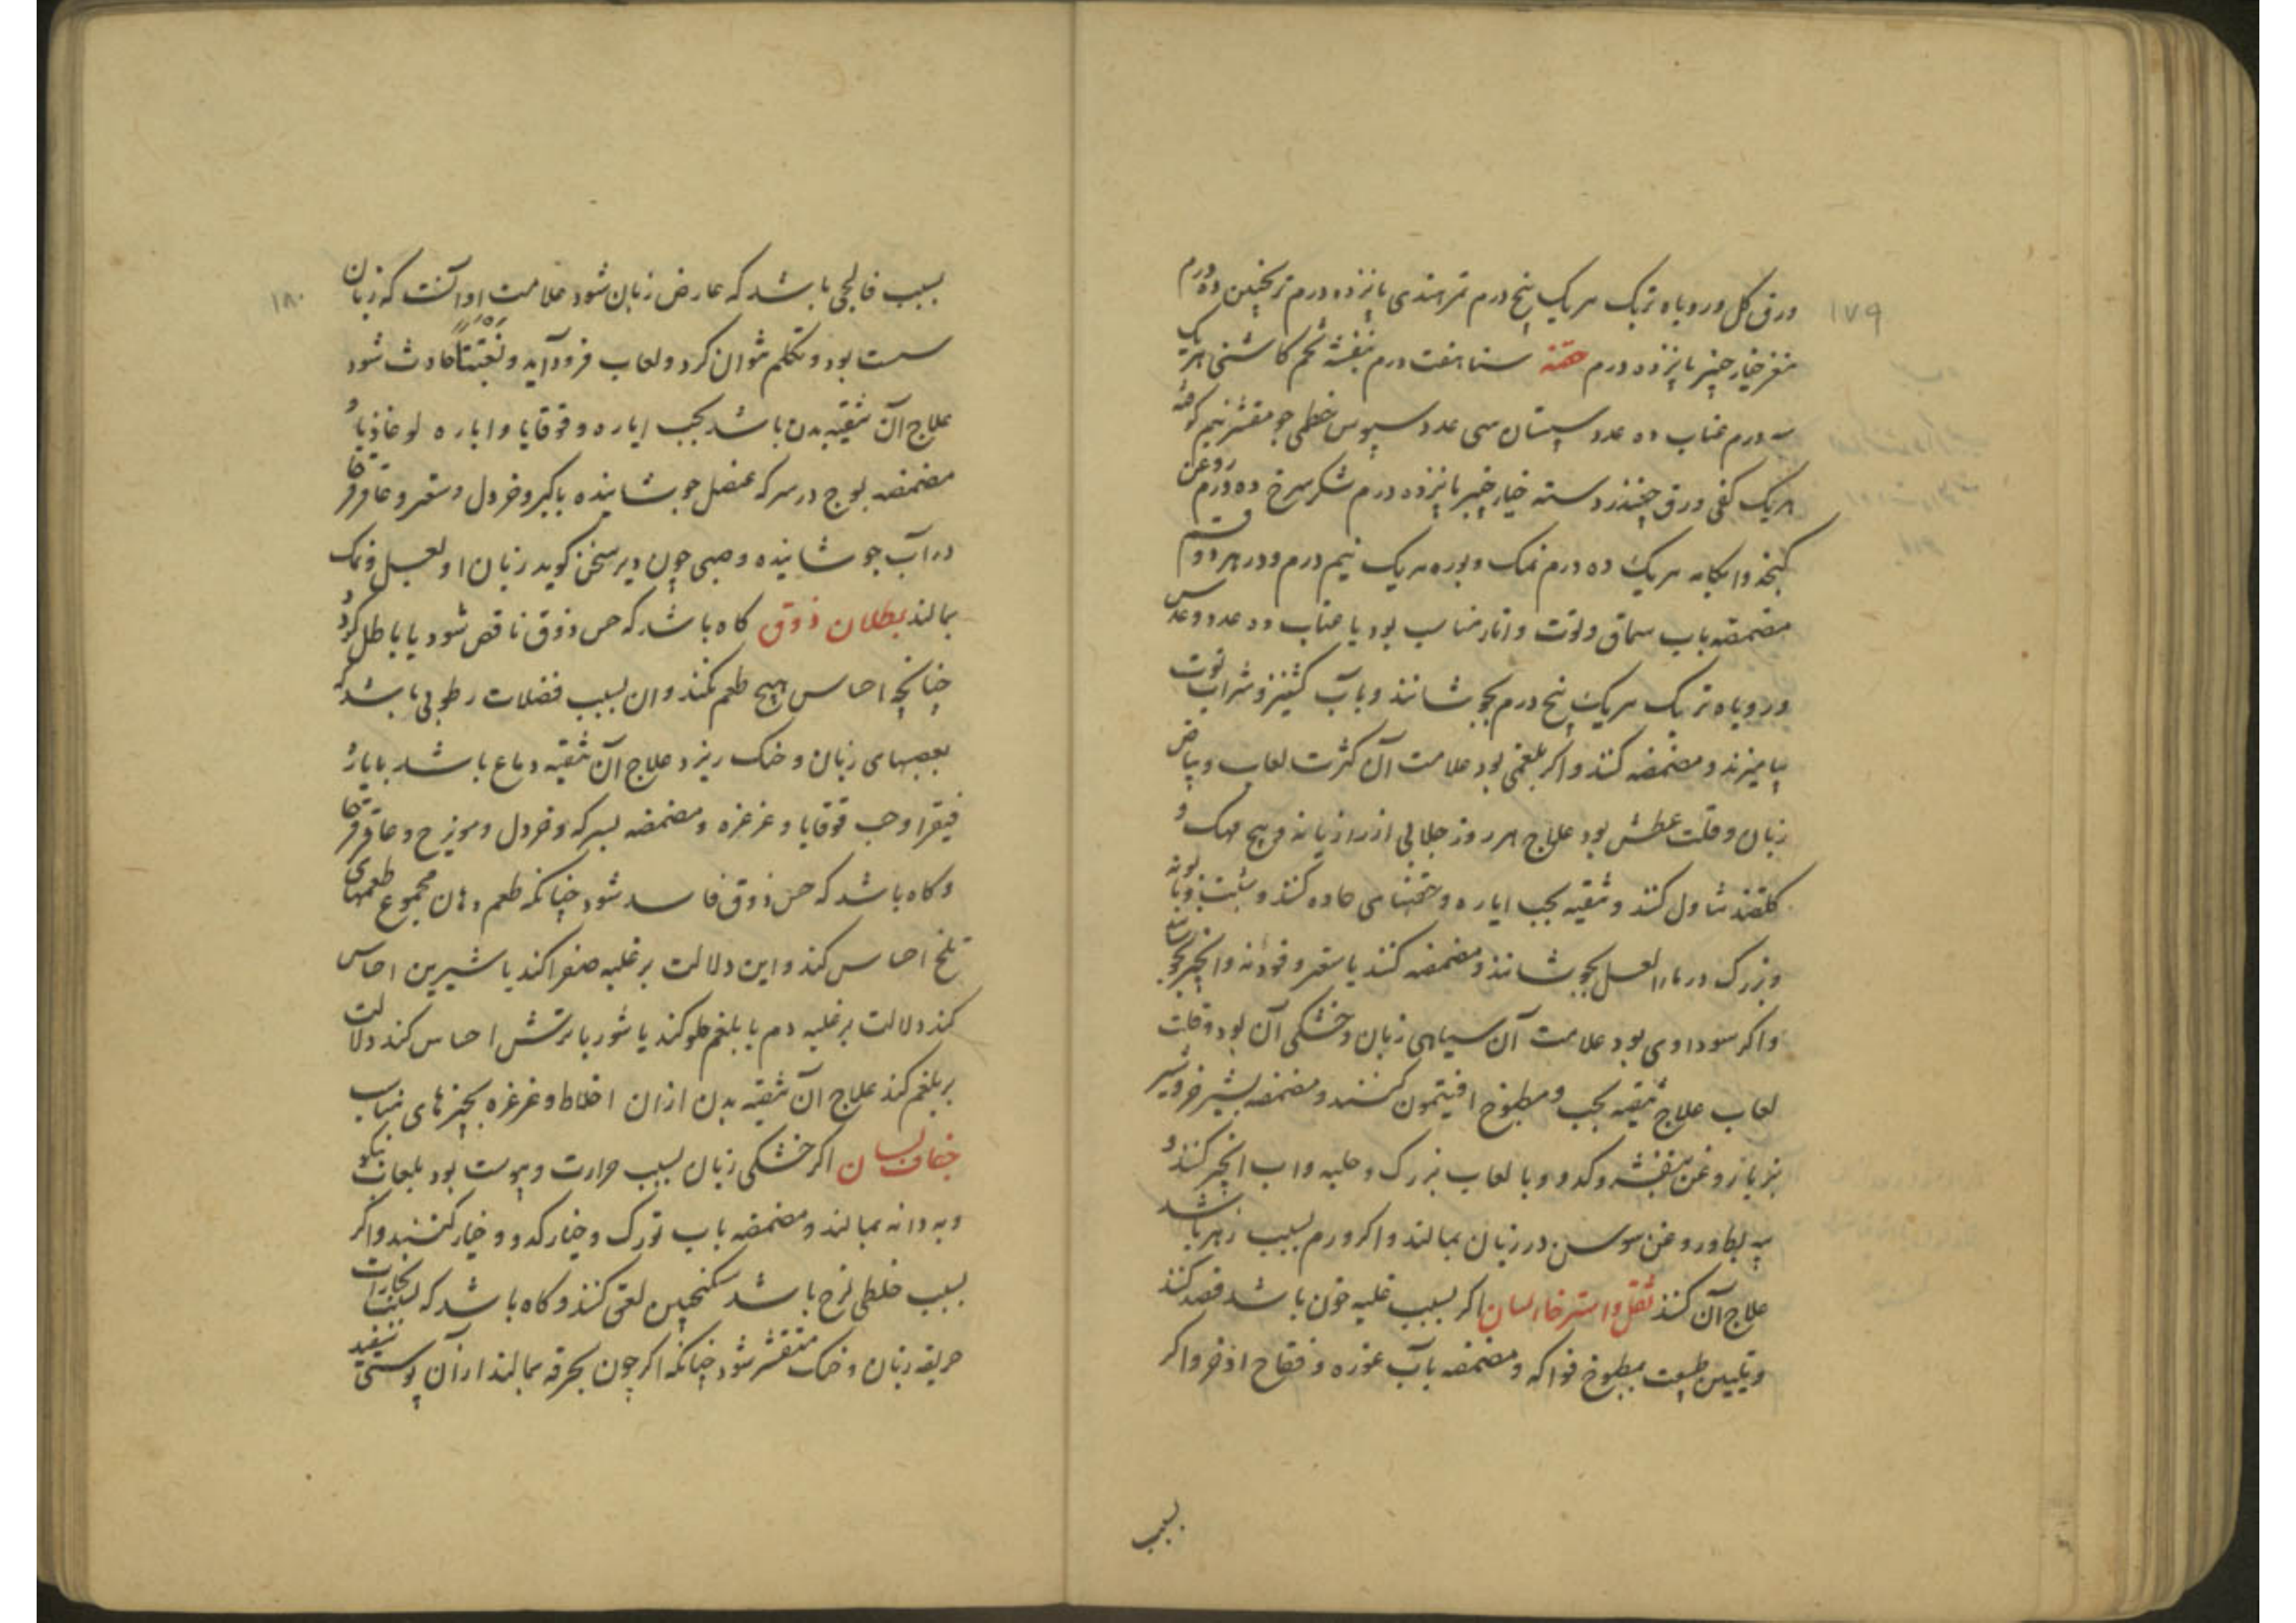 ۱۷۹
ورق کل و روباه تربک هریک پنج درم تمر هندی پانزده درم ترنجبین ده درم
مغز خیار چنبر پانزده درم حقنه سنا هفت درم بنفشه تخم کاشنی هریک
سه درم عناب ده عدد سپستان سی عدد سپوس خطمی جو مقشر نیم کوفته
هریک کفی ورق چغندر دسته خیار چنبر پانزده درم شکر سرخ ده درم روغن
کنجد وابکامه هریک ده درم نمک و بوره هریک نیم درم و در هر دو قسم
مضمضه باب سماق و توت و انار مناسب بود یا عناب ده عدد و عدس
و روباه تربک هریک پنج درم بجوشانند و باب کشنیز و شراب توت
بیامیزند و مضمضه کنند و اکر بلغمی بود علامت آن کثرت لعاب و بیاض
زبان و قلت عطش بود علاج هر روز جلابی از رازیانه و بیخ مهک و
کلقند تناول کنند و تنقیه بحب ایاره و حقنهای حاده کنند و شبت و بابونه
و بزرک در ماء العسل بجوشانند و مضمضه کنند یا سعتر و فودنه و انجیر بجوشانند
و اکر سوداوی بود علامت آن سیاهی زبان و خشکی آن بود و قلت
لعاب علاج تنقیه بحب و مطبوخ افیتمون کنند و مضمضه بشیر خر و شیر
بز یا روغن بنفشه و کدو و با لعاب بزرک و حلبه و اب انجیر کنند و
پیه بط و روغن سوسن در زبان بمالند و اکر ورم بسبب زهر باشد
علاج آن کنند ثقل و استرخاء لسان اکر بسبب غلبه خون باشد فصد کنند
و تلیین طبیعت بمطبوخ فواکه و مضمضه بآب غوره و فقاح اذخر و اکر
بسبب
۱۸۰
بسبب فالجی باشد که عارض زبان شود علامت او آنست که زبان
سست بود و تکلم نتوان کرد و لعاب فرود آید و بغتتاً حادث شود
علاج آن تنقیه بدن باشد بحب ایاره و قوقایا و ایاره لوغاذیا و
مضمضه بوج در سرکه عنصل جوشانیده یا کبر و خردل و سعتر و عاقرقرحا
در آب جوشانیده و صبی چون دیر سخن کوید زبان او لعسل و نمک
بمالند بطلان ذوق کاه باشد که حس ذوق ناقص شود یا باطل کردد
چنانچه احساس هیچ طعم نکند و ان بسبب فضلات رطوبی باشد که
بعصبهای زبان و حنک ریزد علاج آن تنقیه دماغ باشد بایاره
فیقرا و حب قوقایا و غرغره و مضمضه بسرکه و خردل و مویزج و عاقرقرحا
و کاه باشد که حس ذوق فاسد شود چنانکه طعم دهان مجموع طعمهای
تلخ احساس کند و این دلالت بر غلبه صفرا کند یا شیرین احساس
کند دلالت بر غلبه دم یا بلغم حلو کند یا شور یا ترش احساس کند دلالت
بر بلغم کند علاج آن تنقیه بدن ازان اخلاط و غرغره بچیزهای مناسب
جفاف لسان اکر خشکی زبان بسبب حرارت و یبوست بود بلعاب نیکو
و به دانه بمالند و مضمضه باب تورک و خیار کدو و خیار کنند و اکر
بسبب خلطی لزج باشد سکنجبین لعق کنند و کاه باشد که بسبب بخارات
حریفه زبان و حنک متقشر شود چنانکه اکر چون بخرقه بمالند ازآن پوستی سفید